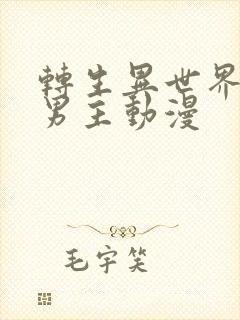 轉生異世界
男主動漫
毛宇笑